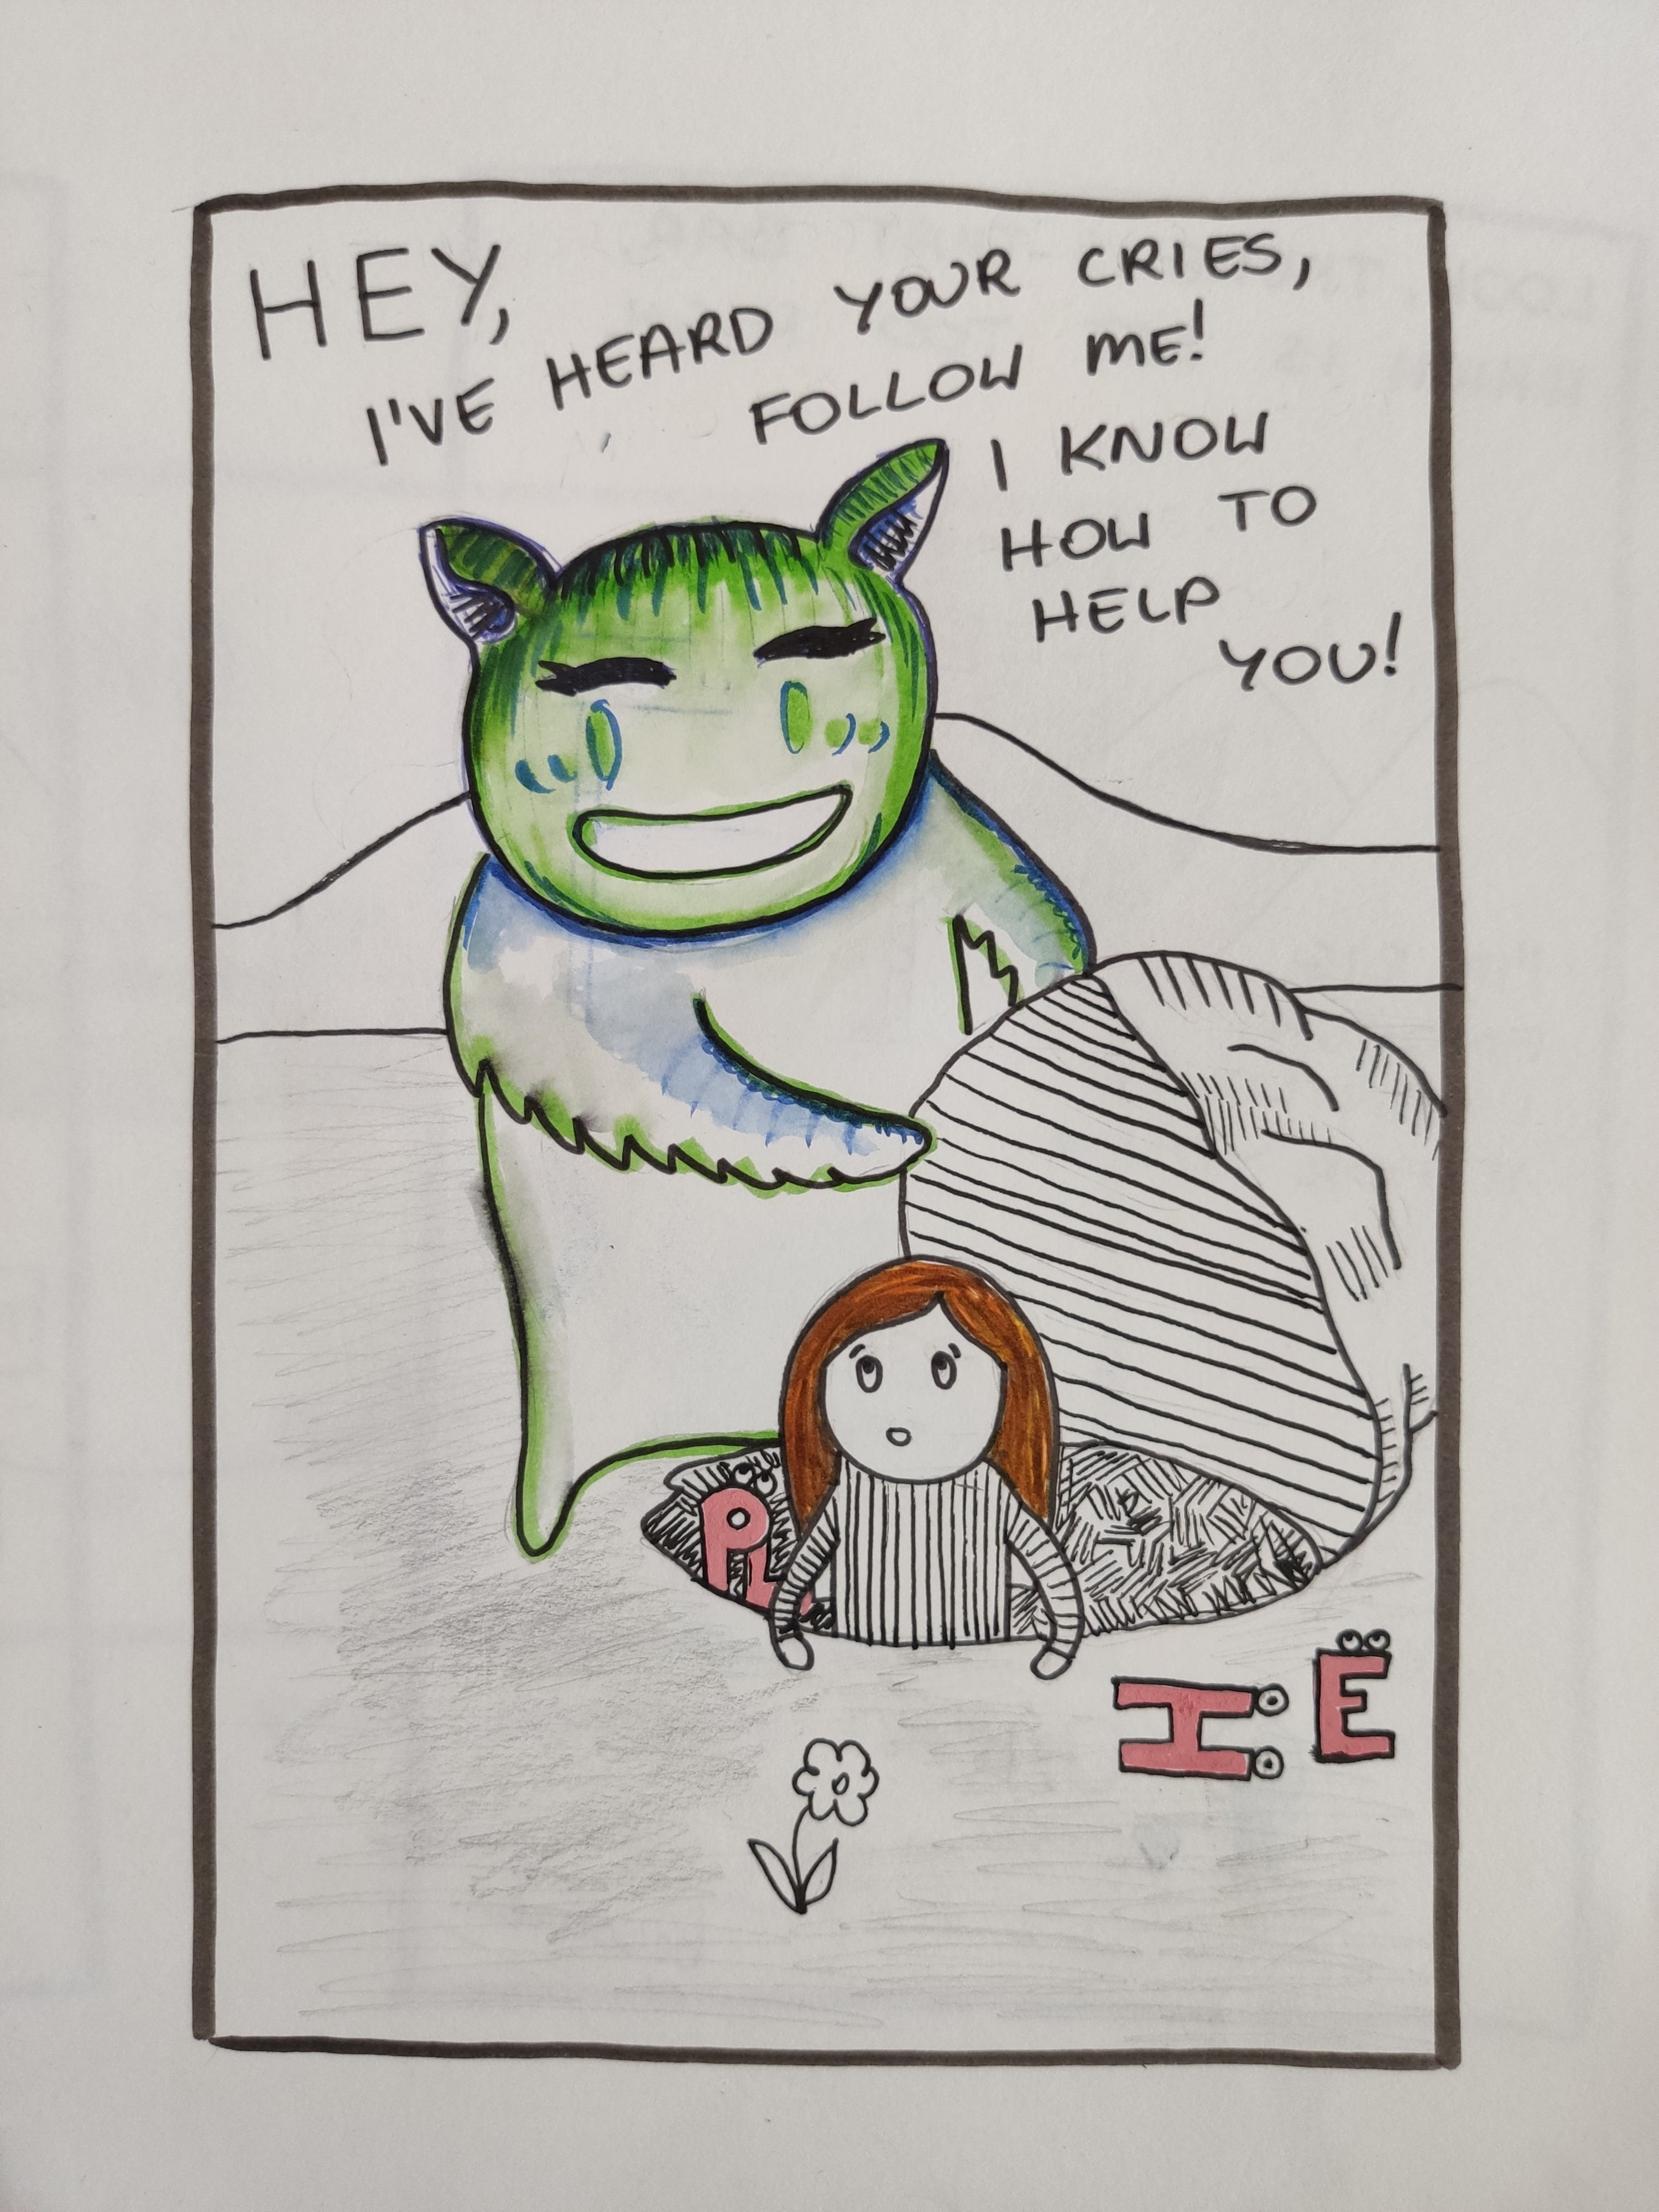 HEY,
I'VE HEARD YOUR CRIES,
FOLLOW ME!
I KNOW
HOW TO
HELP
YOU!
PL
H E